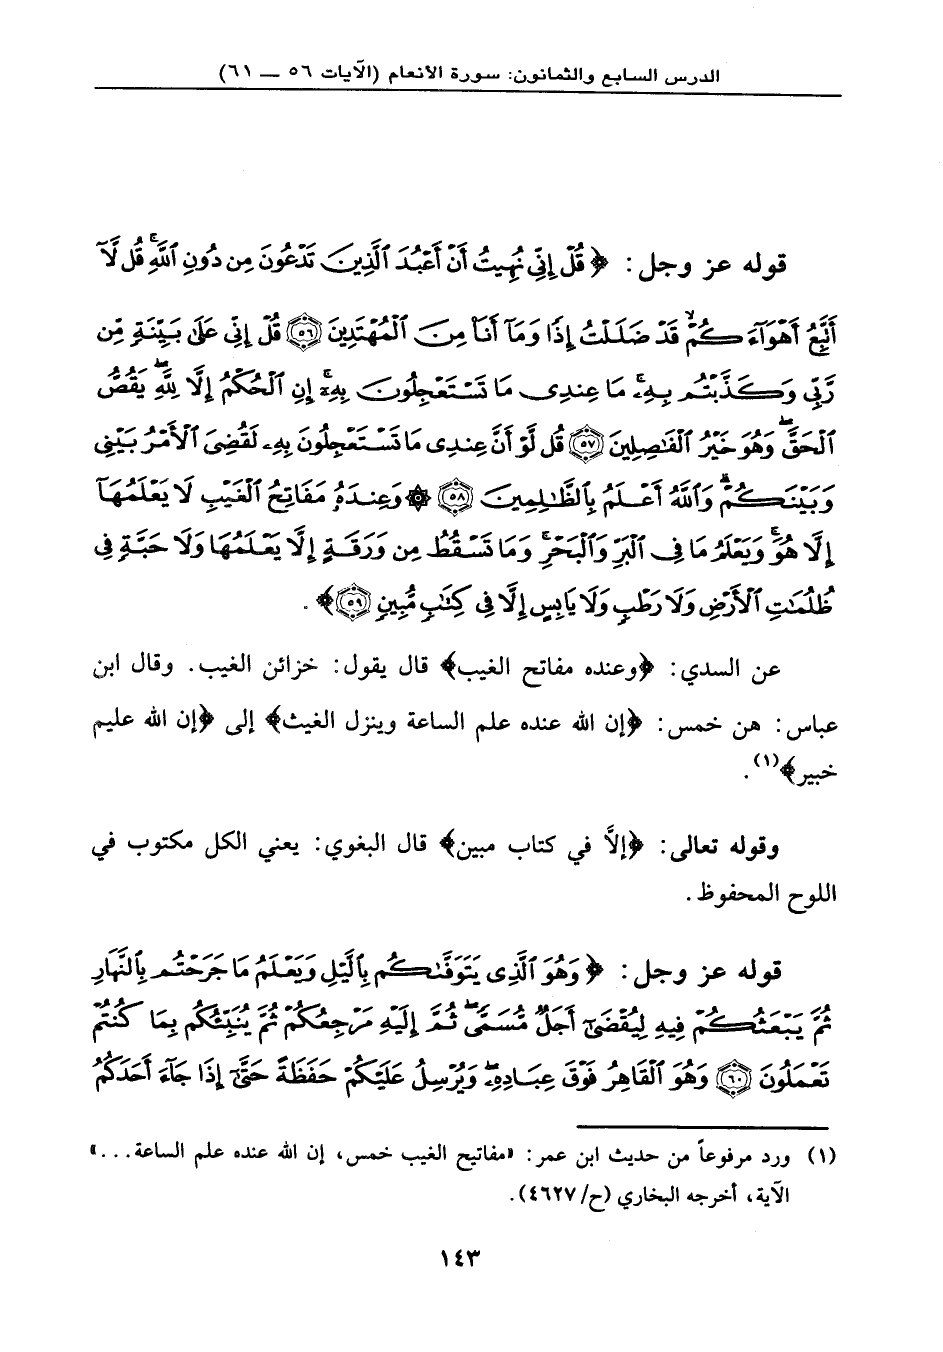 الدرس السابع والثمانون: سورة الأنعام (الآيات ٥٦ — ٦١)
قوله عز وجل: ﴿قُلْ إِنِّي نُهِيتُ أَنْ أَعْبُدَ ٱلَّذِينَ تَدْعُونَ مِن دُونِ ٱللَّهِۚ قُل لَّآ
أَتَّبِعُ أَهْوَآءَكُمْۙ قَدْ ضَلَلْتُ إِذًا وَمَآ أَنَا۠ مِنَ ٱلْمُهْتَدِينَ ٥٦ قُلْ إِنِّي عَلَىٰ بَيِّنَةٍ مِّن
رَّبِّي وَكَذَّبْتُم بِهِۦۚ مَا عِندِي مَا تَسْتَعْجِلُونَ بِهِۦٓۚ إِنِ ٱلْحُكْمُ إِلَّا لِلَّهِۖ يَقُصُّ
ٱلْحَقَّۖ وَهُوَ خَيْرُ ٱلْفَٰصِلِينَ ٥٧ قُل لَّوْ أَنَّ عِندِي مَا تَسْتَعْجِلُونَ بِهِۦ لَقُضِيَ ٱلْأَمْرُ بَيْنِي
وَبَيْنَكُمْۗ وَٱللَّهُ أَعْلَمُ بِٱلظَّٰلِمِينَ ٥٨ ۞ وَعِندَهُۥ مَفَاتِحُ ٱلْغَيْبِ لَا يَعْلَمُهَآ
إِلَّا هُوَۚ وَيَعْلَمُ مَا فِي ٱلْبَرِّ وَٱلْبَحْرِۚ وَمَا تَسْقُطُ مِن وَرَقَةٍ إِلَّا يَعْلَمُهَا وَلَا حَبَّةٍ فِي
ظُلُمَٰتِ ٱلْأَرْضِ وَلَا رَطْبٍ وَلَا يَابِسٍ إِلَّا فِي كِتَٰبٍ مُّبِينٍ ٥٩﴾.
عن السدي: ﴿وعنده مفاتح الغيب﴾ قال يقول: خزائن الغيب. وقال ابن
عباس: هن خمس: ﴿إن الله عنده علم الساعة وينزل الغيث﴾ إلى ﴿إن الله عليم
خبير﴾(١).
وقوله تعالى: ﴿إلاَّ في كتاب مبين﴾ قال البغوي: يعني الكل مكتوب في
اللوح المحفوظ.
قوله عز وجل: ﴿وَهُوَ ٱلَّذِي يَتَوَفَّىٰكُم بِٱلَّيْلِ وَيَعْلَمُ مَا جَرَحْتُم بِٱلنَّهَارِ
ثُمَّ يَبْعَثُكُمْ فِيهِ لِيُقْضَىٰٓ أَجَلٌ مُّسَمًّىۖ ثُمَّ إِلَيْهِ مَرْجِعُكُمْ ثُمَّ يُنَبِّئُكُم بِمَا كُنتُمْ
تَعْمَلُونَ ٦٠ وَهُوَ ٱلْقَاهِرُ فَوْقَ عِبَادِهِۦۖ وَيُرْسِلُ عَلَيْكُمْ حَفَظَةً حَتَّىٰٓ إِذَا جَآءَ أَحَدَكُمُ
(١) ورد مرفوعاً من حديث ابن عمر: «مفاتيح الغيب خمس، إن الله عنده علم الساعة...»
الآية، أخرجه البخاري (ح/٤٦٢٧).
١٤٣